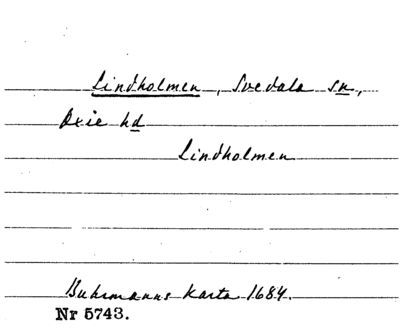 Lindholmen, Svedala sn,
Oxie hd
Lindholmen
Buhrmanns Karta 1684.
Nr 5743.